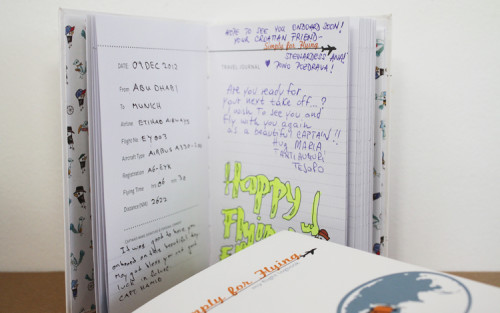 DATE: 09 DEC 2012
From ABU DHABI
To MUNICH
Airline ETIHAD AIRWAYS
Flight No EY 003
Aircraft Type AIRBUS A330-200
Registration A6-EYK
Flying Time 06 30
Distance flown 2822
It was good to have you
onboard on this beautiful day.
May god bless you and good
luck in future
CAPT. HAMID
HOPE TO SEE YOU ONBOARD SOON!
YOUR CROATIAN FRIEND-
Simply for Flying
STEWARDESS ANA!
TRAVEL JOURNAL
♥ PUNO POZDRAVA!
Are you ready for
your next take off...?
I wish to see you and
fly with you again
as a beautiful CAPTAIN!!
Hug MARIA
TANTI AUGURI
TESORO
Happy
Flying
Simply for Flying